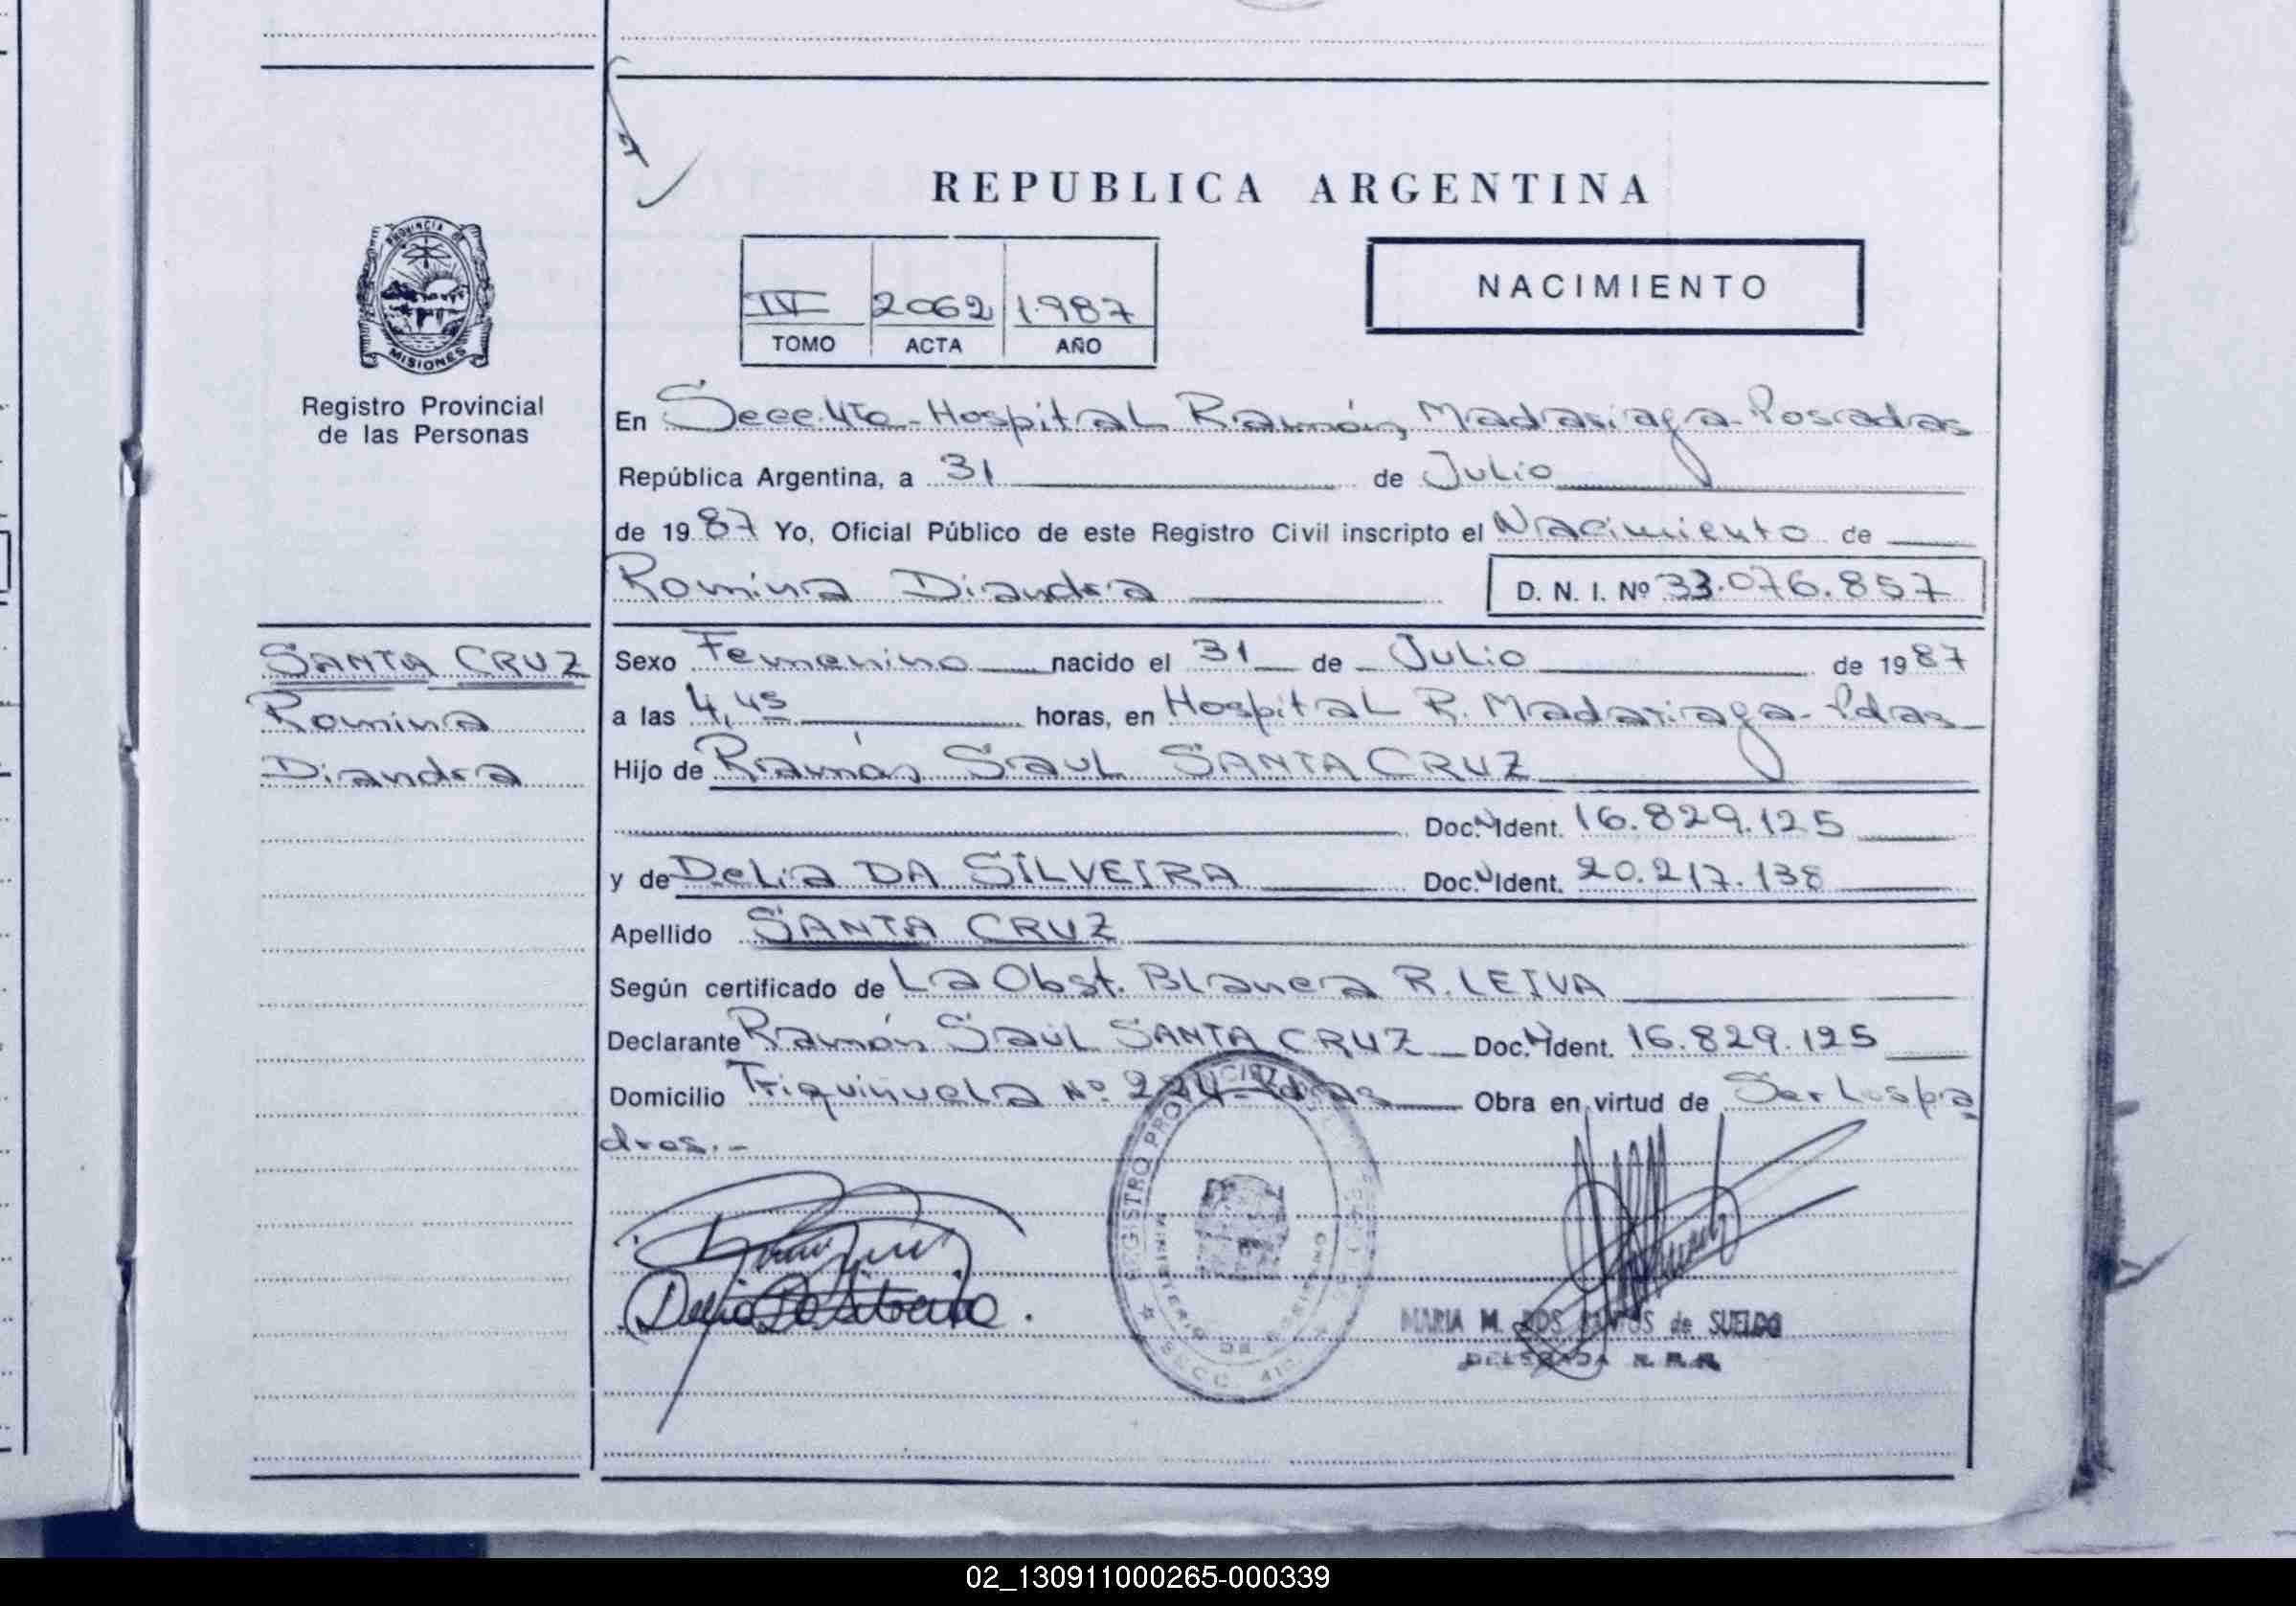 REPUBLICA ARGENTINA
PROVINCIA DE
MISIONES
Registro Provincial
de las Personas
IV 2062 1987
TOMO ACTA AÑO
NACIMIENTO
En Secc. 4ta - Hospital Ramón Madariaga - Posadas
República Argentina, a 31 de Julio
de 1987 Yo, Oficial Público de este Registro Civil inscripto el Nacimiento de
Romina Diandra D. N. I. Nº 33.076.857
SANTA CRUZ
Romina
Diandra
Sexo Femenino nacido el 31 de Julio de 1987
a las 4,45 horas, en Hospital R. Madariaga - Pdas
Hijo de Ramón Saul SANTA CRUZ
Doc. Ident. 16.829.125
y de Delia DA SILVEIRA Doc. Ident. 20.217.138
Apellido SANTA CRUZ
Según certificado de La Obst. Blanca R. LEIVA
Declarante Ramón Saúl SANTA CRUZ Doc. Ident. 16.829.125
Domicilio Triquiñuela Nº Obra en virtud de Ser Los pa
dres.-
REGISTRO
MINISTERIO DE
MARIA M. DOS SANTOS de SUELDO
DELEGADA
02_130911000265-000339